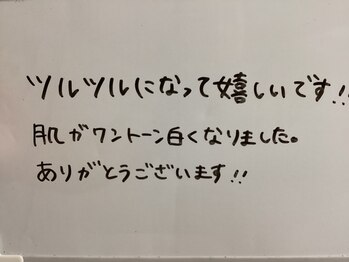 ツルツルになって嬉しいです!!
肌がワントーン白くなりました。
ありがとうございます!!